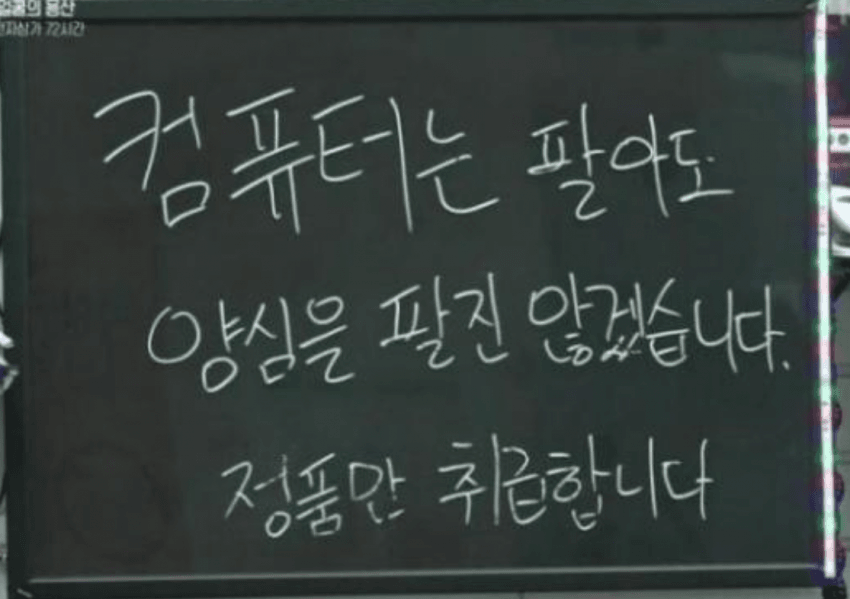 의 용산
전자상가 72시간
컴퓨터는 팔아도
양심을 팔진 않겠습니다.
정품만 취급합니다